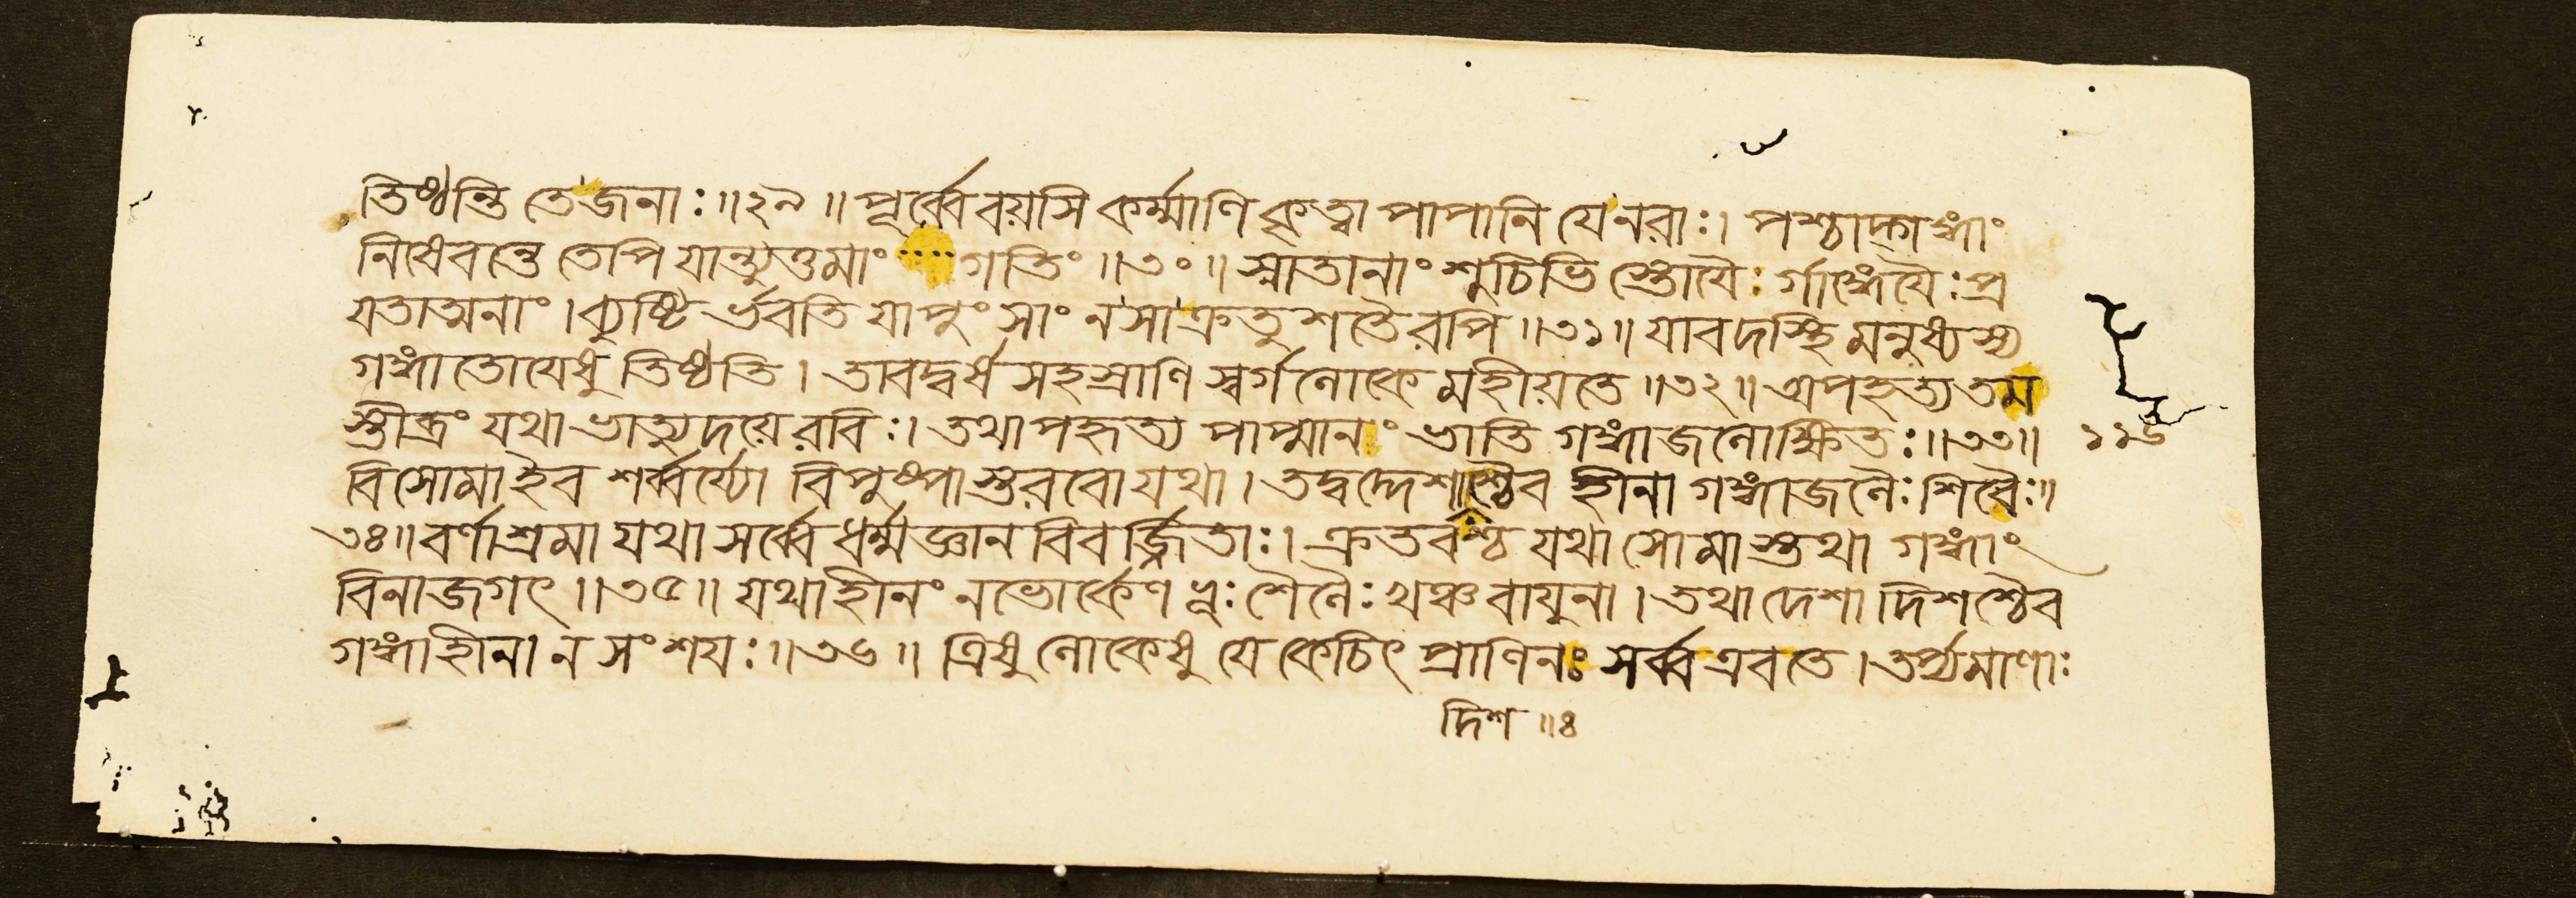 তিষ্ঠন্তি তে জনাঃ ॥২৯॥ পূর্ব্বে বয়সি কর্ম্মাণি কৃত্বা পাপানি যে নরাঃ। পশ্চাদ্গঙ্গাং
নিষেবন্তে তেপি যান্ত্যুত্তমাং গতিং ॥৩০॥ স্নাতানাং শুচিভিস্তোযৈঃ র্গাঙ্গেযৈঃ প্র
যতাত্মনাং। ব্যুষ্টির্ভবতি যা পুংসাং ন সা ক্রতুশতৈরপি ॥৩১॥ যাবদস্থি মনুষ্যস্য
গঙ্গাতোযেষু তিষ্ঠতি। তাবদ্বর্ষসহস্রাণি স্বর্গলোকে মহীয়তে ॥৩২॥ অপহত্য তম
স্তীব্রং যথা ভাত্যুদয়ে রবিঃ। তথাপহৃত্য পাপ্মানং ভাতি গঙ্গাজলোক্ষিতঃ ॥৩৩॥
১১৬
বিসোমা ইব শর্ব্বর্য্যো বিপুষ্পাস্তরবো যথা। তদ্বদ্দেশা দিশশ্চৈব হীনা গঙ্গাজলৈঃ শিবৈঃ॥
৩৪॥ বর্ণাশ্রমা যথা সর্ব্বে ধর্ম্মজ্ঞানবিবর্জ্জিতাঃ। ক্রতবশ্চ যথাসোমাস্তথা গঙ্গাং
বিনা জগৎ ॥৩৫॥ যথা হীনং নভোর্কেণ ভূঃ শৈলৈঃ খঞ্চ বাযুনা। তথা দেশা দিশশ্চৈব
গঙ্গাহীনা ন সংশযঃ ॥৩৬॥ ত্রিষু লোকেষু যে কেচিৎ প্রাণিনঃ সর্ব্ব এব তে। তর্প্যমাণাঃ
দিশ ॥৪